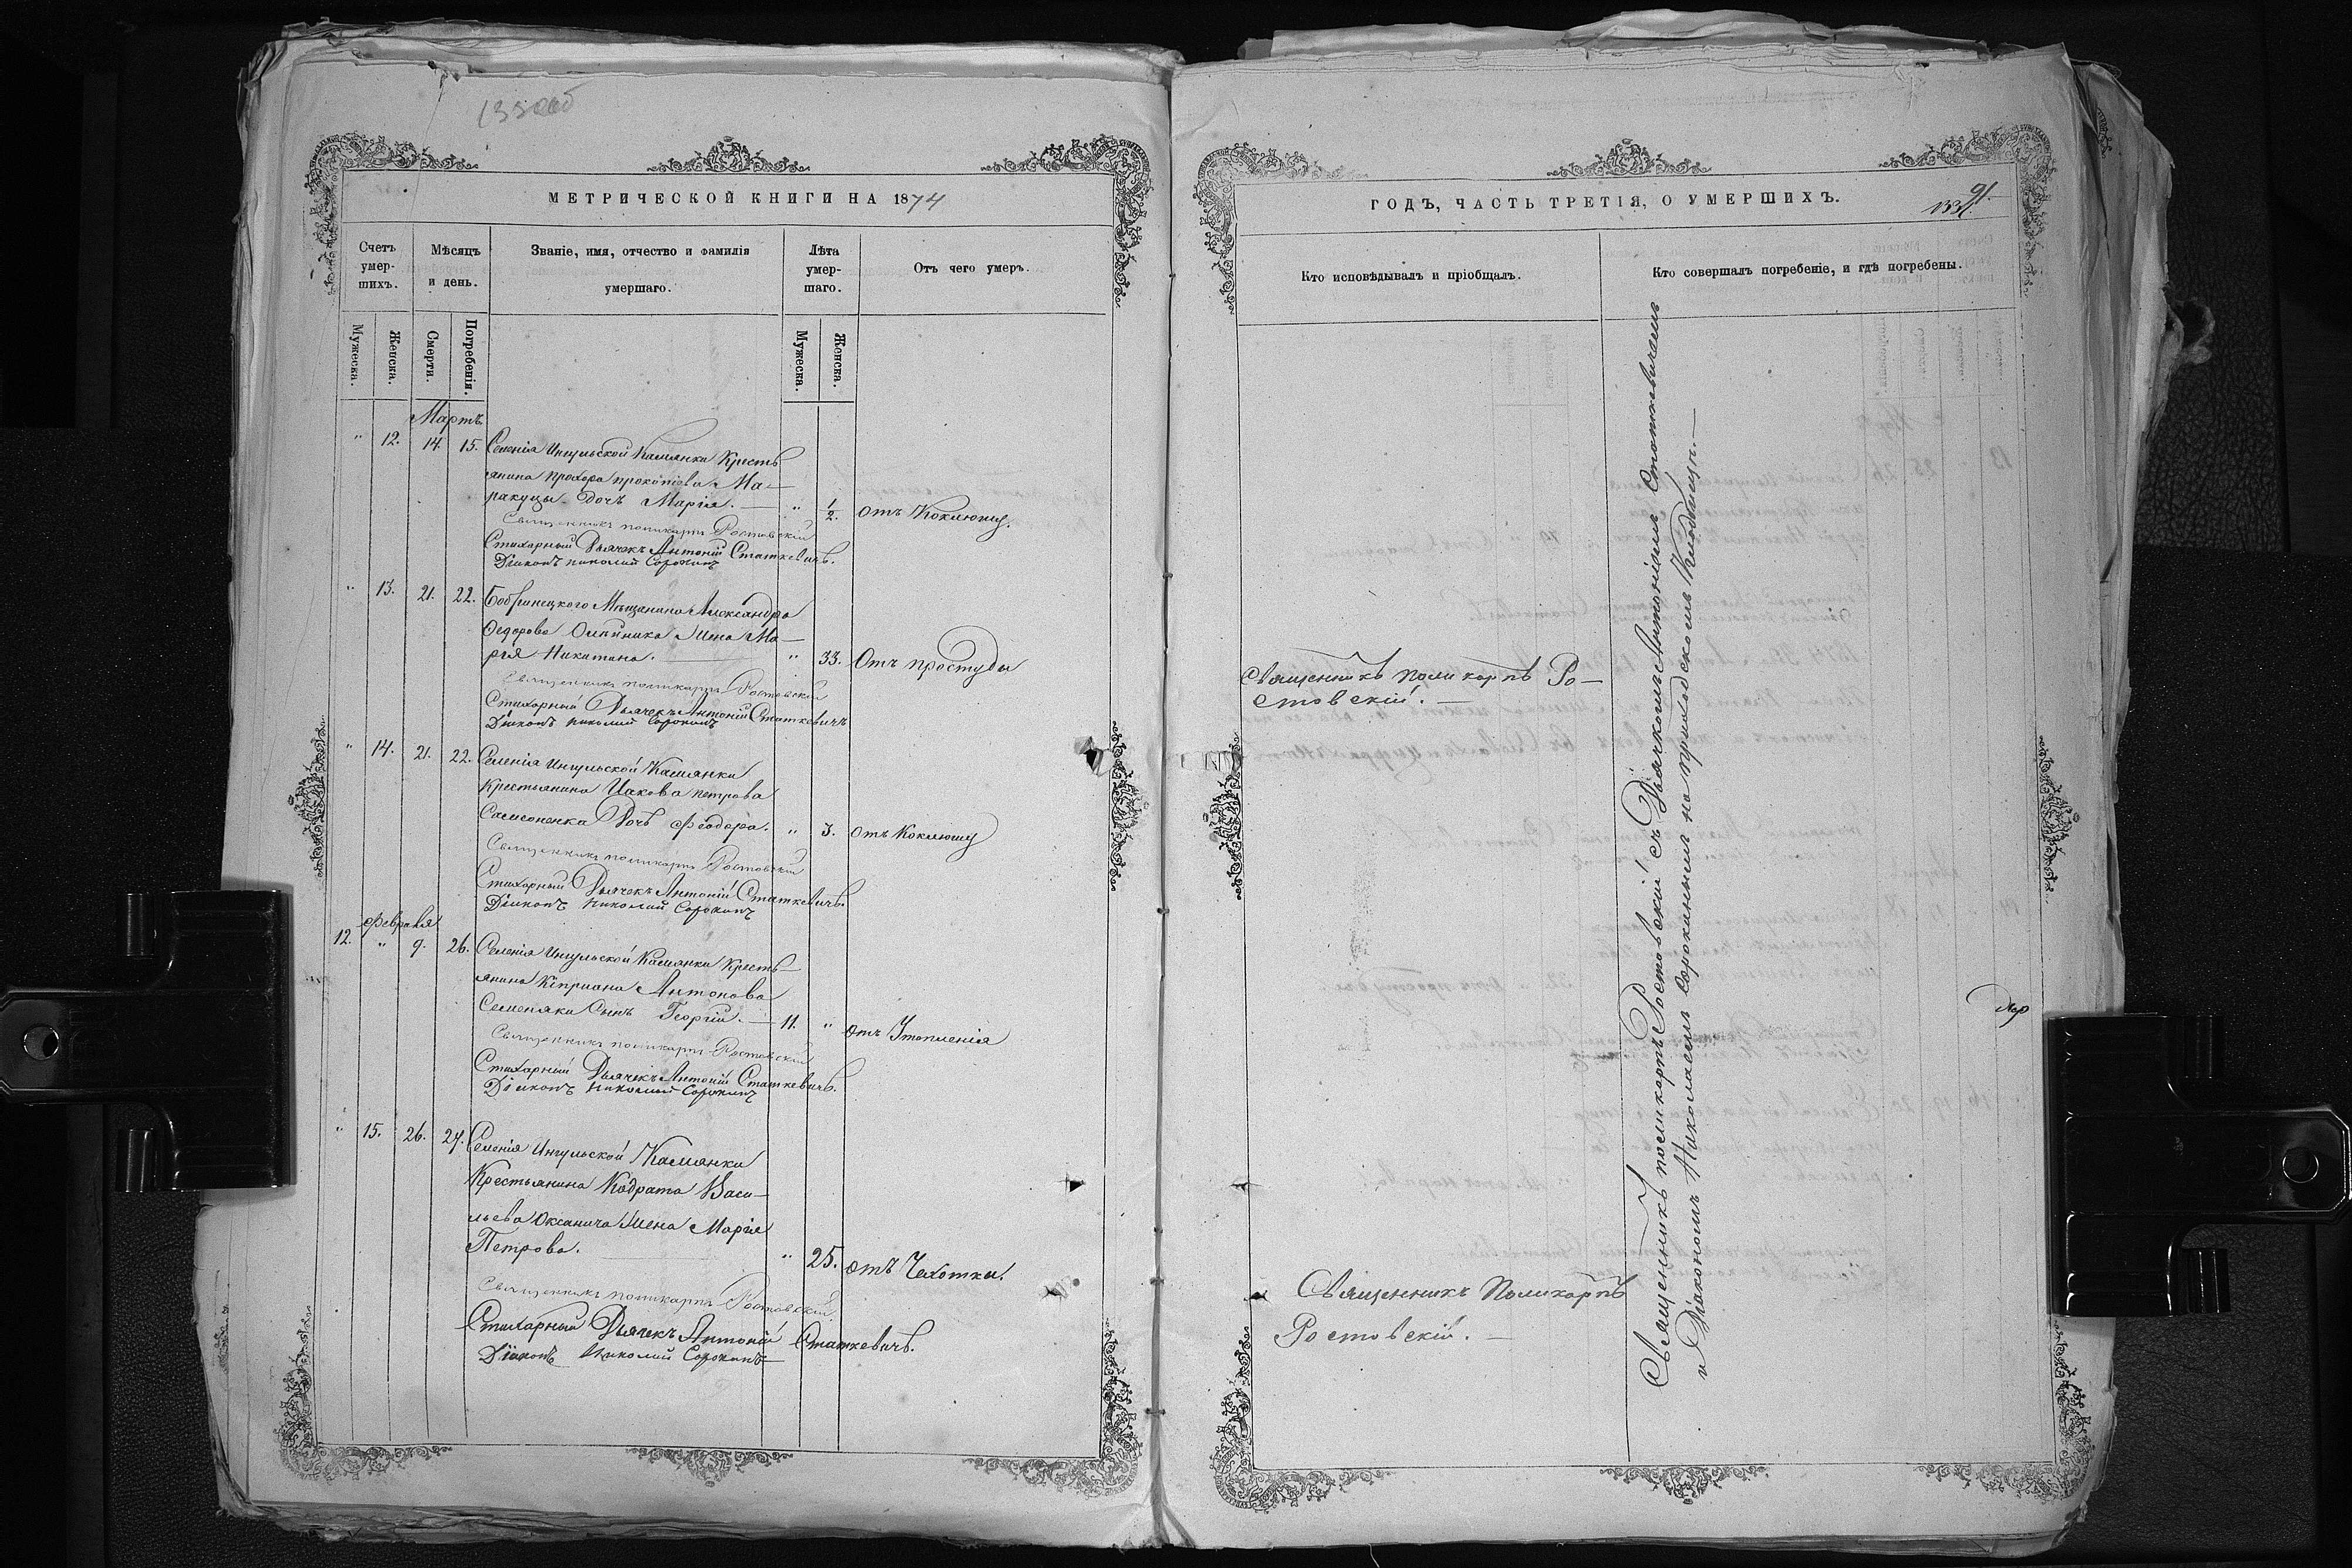 МЕТРИЧЕСКОЙ КНИГИ НА 1874
Счетъ умер-шихъ.
Мѣсяцъ и день.
Званіе, имя, отчество и фамилія умершаго.
Лѣта умер-шаго.
Отъ чего умеръ.
Мужеска.
Женска.
Смерти.
Погребенія.
Мужеска.
Женска.
Мартъ
" 12. 14. 15. Селенія Ингульской Камянки Кресть
янина Прохора Прокопіева Ма-
ракуцы Дочь Марія. — " 1/2. отъ Коклюшу.
Священникъ Поликарпъ Ростовскій
Стихарный Дьячекъ Антоній Статкевичъ.
Діаконъ Николай Сорокинъ
" 13. 21. 22. Бобринецкого Мѣщанина Александра
Федорова Жена Ма-
рія Никитина. — " 33. Отъ простуды
Священникъ Поликарпъ Ростовскій
Стихарный Дьячекъ Антоній Статкевичъ
Діаконъ Николай Сорокинъ
" 14. 21. 22. Селенія Ингульской Камянки
Крестьянина Иакова Петрова
Самсоненка Дочь Феодора. " 3. отъ Коклюшу
Священникъ Поликарпъ Ростовскій
Стихарный Дьячекъ Антоній Статкевичъ.
Діаконъ Николай Сорокинъ
Февраля
12. " 9. 26. Селенія Ингульской Камянки Кресть-
янина Кипріана Антонова
Семеняки Сынъ Георгій. — 11. " отъ Утопленія
Священникъ Поликарпъ Ростовскій
Стихарный Дьячекъ Антоній Статкевичъ.
Діаконъ Николай Сорокинъ
" 15. 26. 27. Селенія Ингульской Камянки
Крестьянина Кодрата Васи-
льева Оксанича Жена Марія
Петрова. " 25. отъ Чахотки.
Священникъ Поликарпъ Ростовскій
Стихарный Дьячекъ Антоній Статкевичъ.
Діаконъ Николай Сорокинъ
ГОДЪ, ЧАСТЬ ТРЕТІЯ, О УМЕРШИХЪ.
91.
Кто исповѣдывалъ и пріобщалъ.
Кто совершалъ погребеніе, и гдѣ погребены.
Священникъ Поликарпъ Ро-
стовскій. —
Священникъ Поликарпъ
Ростовскій. —
Священникъ Поликарпъ Ростовскій съ Дьячкомъ Антоніемъ Статкевичемъ
и Діакономъ Николаемъ Сорокинымъ на приходскомъ Кладбищѣ. —